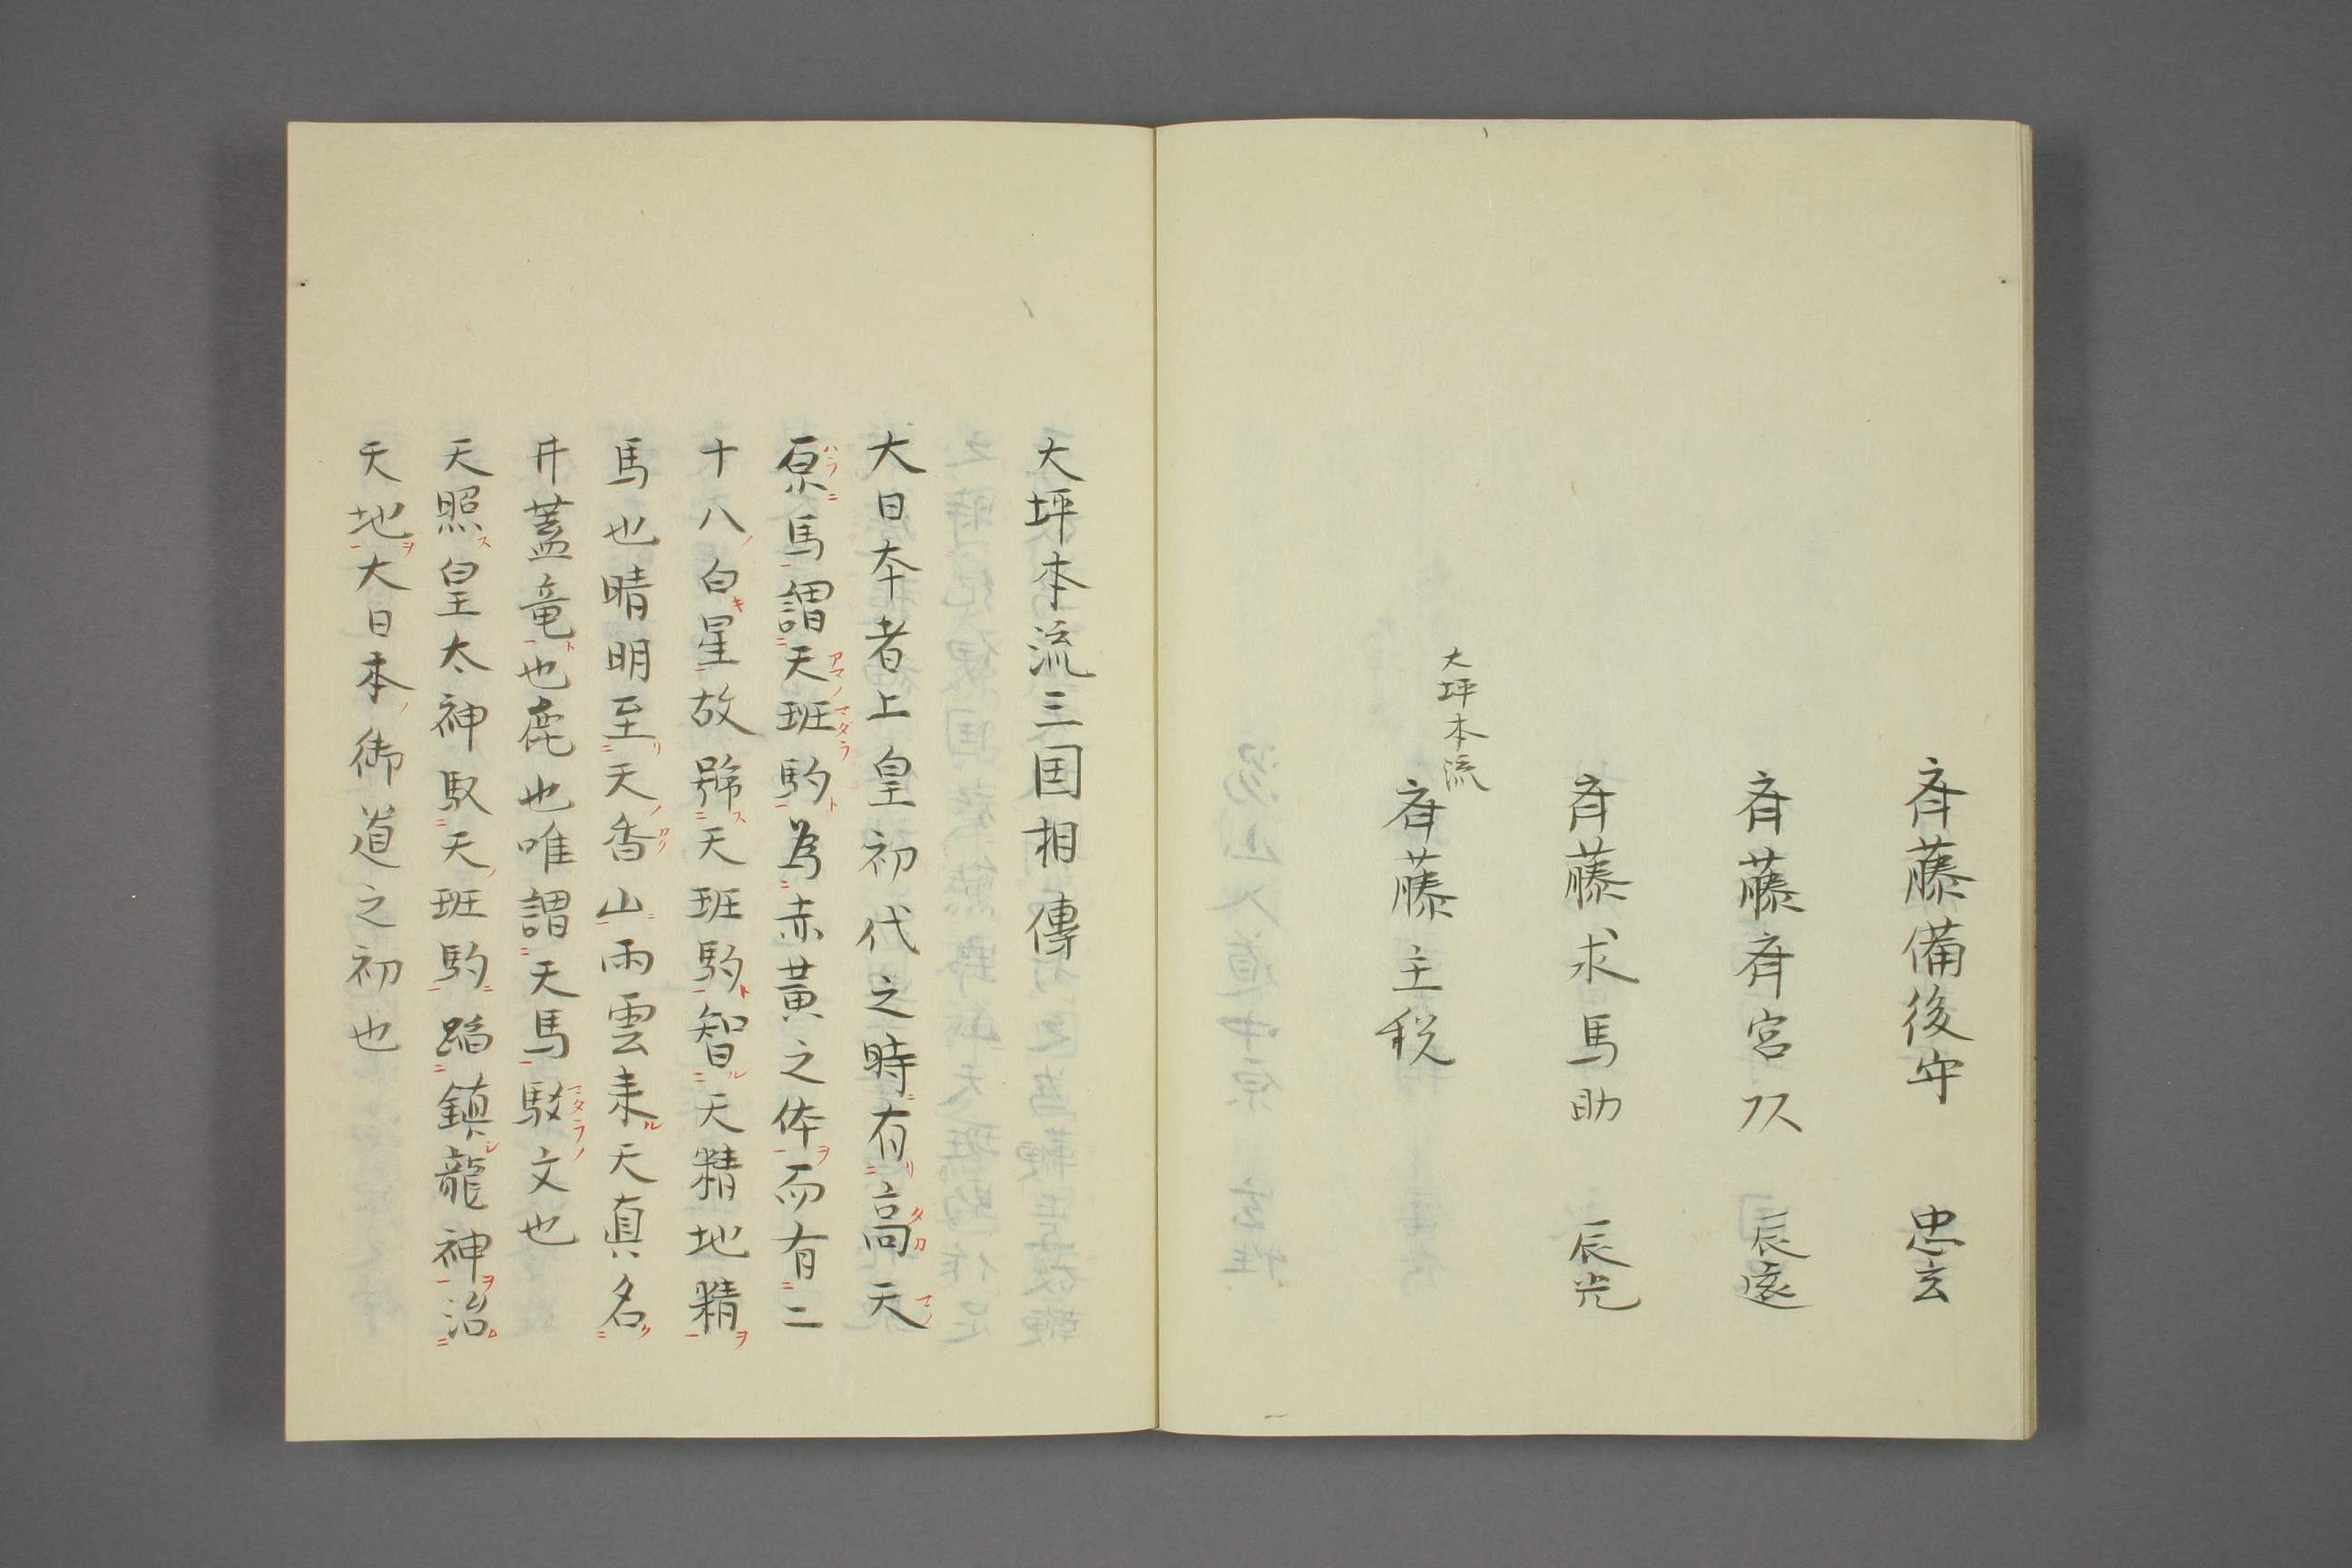 斉藤備後守　忠玄
斉藤斉宮 辰遠
斉藤求馬助　辰光
大坪本流
斉藤主税
大坪本流三国相傳
大日本者上皇初代之時有高天
原馬謂天班駒為赤黄之体而有二
十八白星故号天班駒智天精地精
馬也晴明至天香山雨雲来天真名
井蓋竜也鹿也唯謂天馬駁文也
天照皇太神馭天班駒蹈鎮龍神治
天地大日本御道之初也